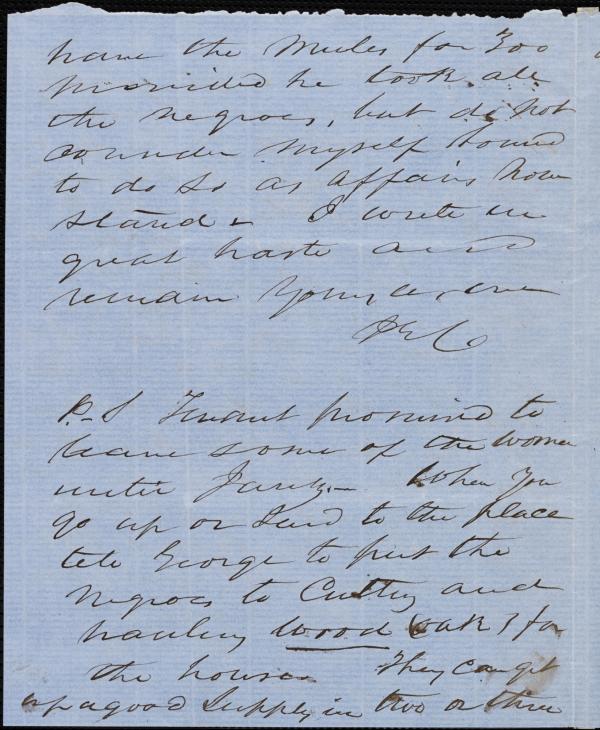 have the Mules for 300
provided he took all
the negroes, but do not
consider myself bound
to do so as affairs now
stand - I write in
great haste and
remain Yours as ever
P.S promised to
leave some of the women
until Jany - When you
go up or send to the place
tell George to put the
negroes to Cutting and
hauling wood (oak) for
the house. They can get
up a good supply in two or three